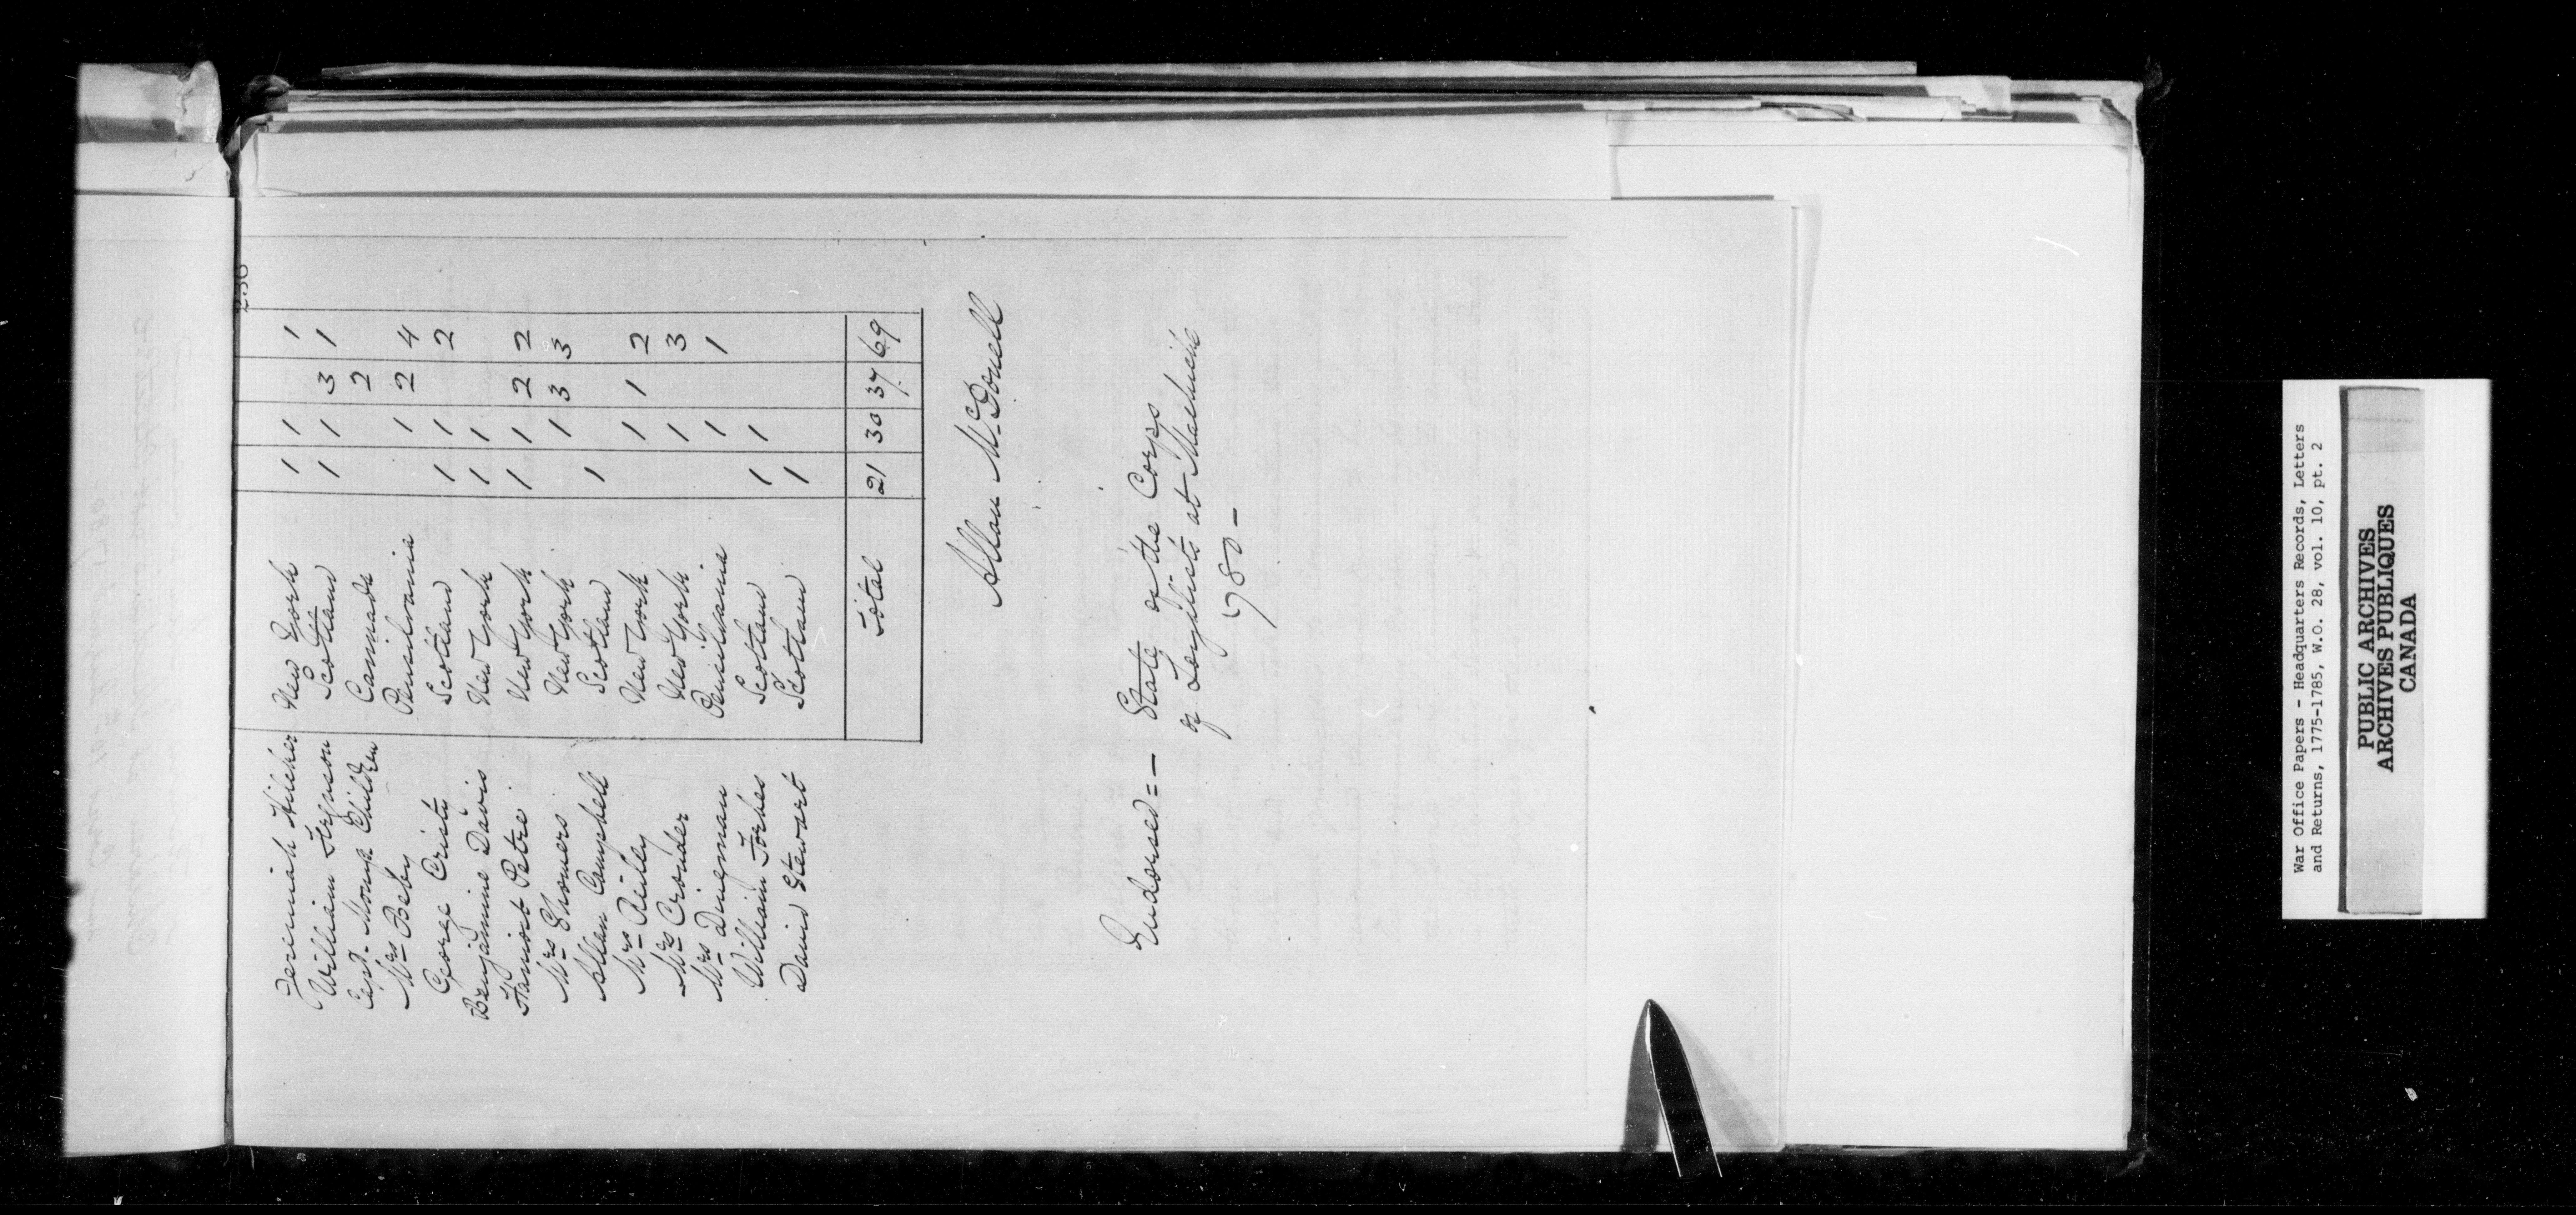 230
Jeremiah Hilcher New York 1 1 1
William Ferguson Scotland 1 1 3 1
Capt. Monys Children Caninada 2
Mrs Beby Pensilvania 1 2 4
George Cristy Scotland 1 1 2
Benjamine Davis New York 1 1
Haniost Petre New York 1 1 2 2
Mrs Shomers New York 1 3 3
Allan Campbell Scotland 1
Mrs Reiley New York 1 1 2
Mrs Crouder New York 1 3
Mrs Dingman Pensilvania 1 1
William Forbes Scotland 1 1
David Stewart Scotland 1
Total 21 30 37 69
Allan McDonell
Endorsed = - State of the Corps
of Loyalists at Machiche
1780 -
War Office Papers - Headquarters Records, Letters
and Returns, 1775-1785, W.O. 28, vol. 10, pt. 2
PUBLIC ARCHIVES
ARCHIVES PUBLIQUES
CANADA